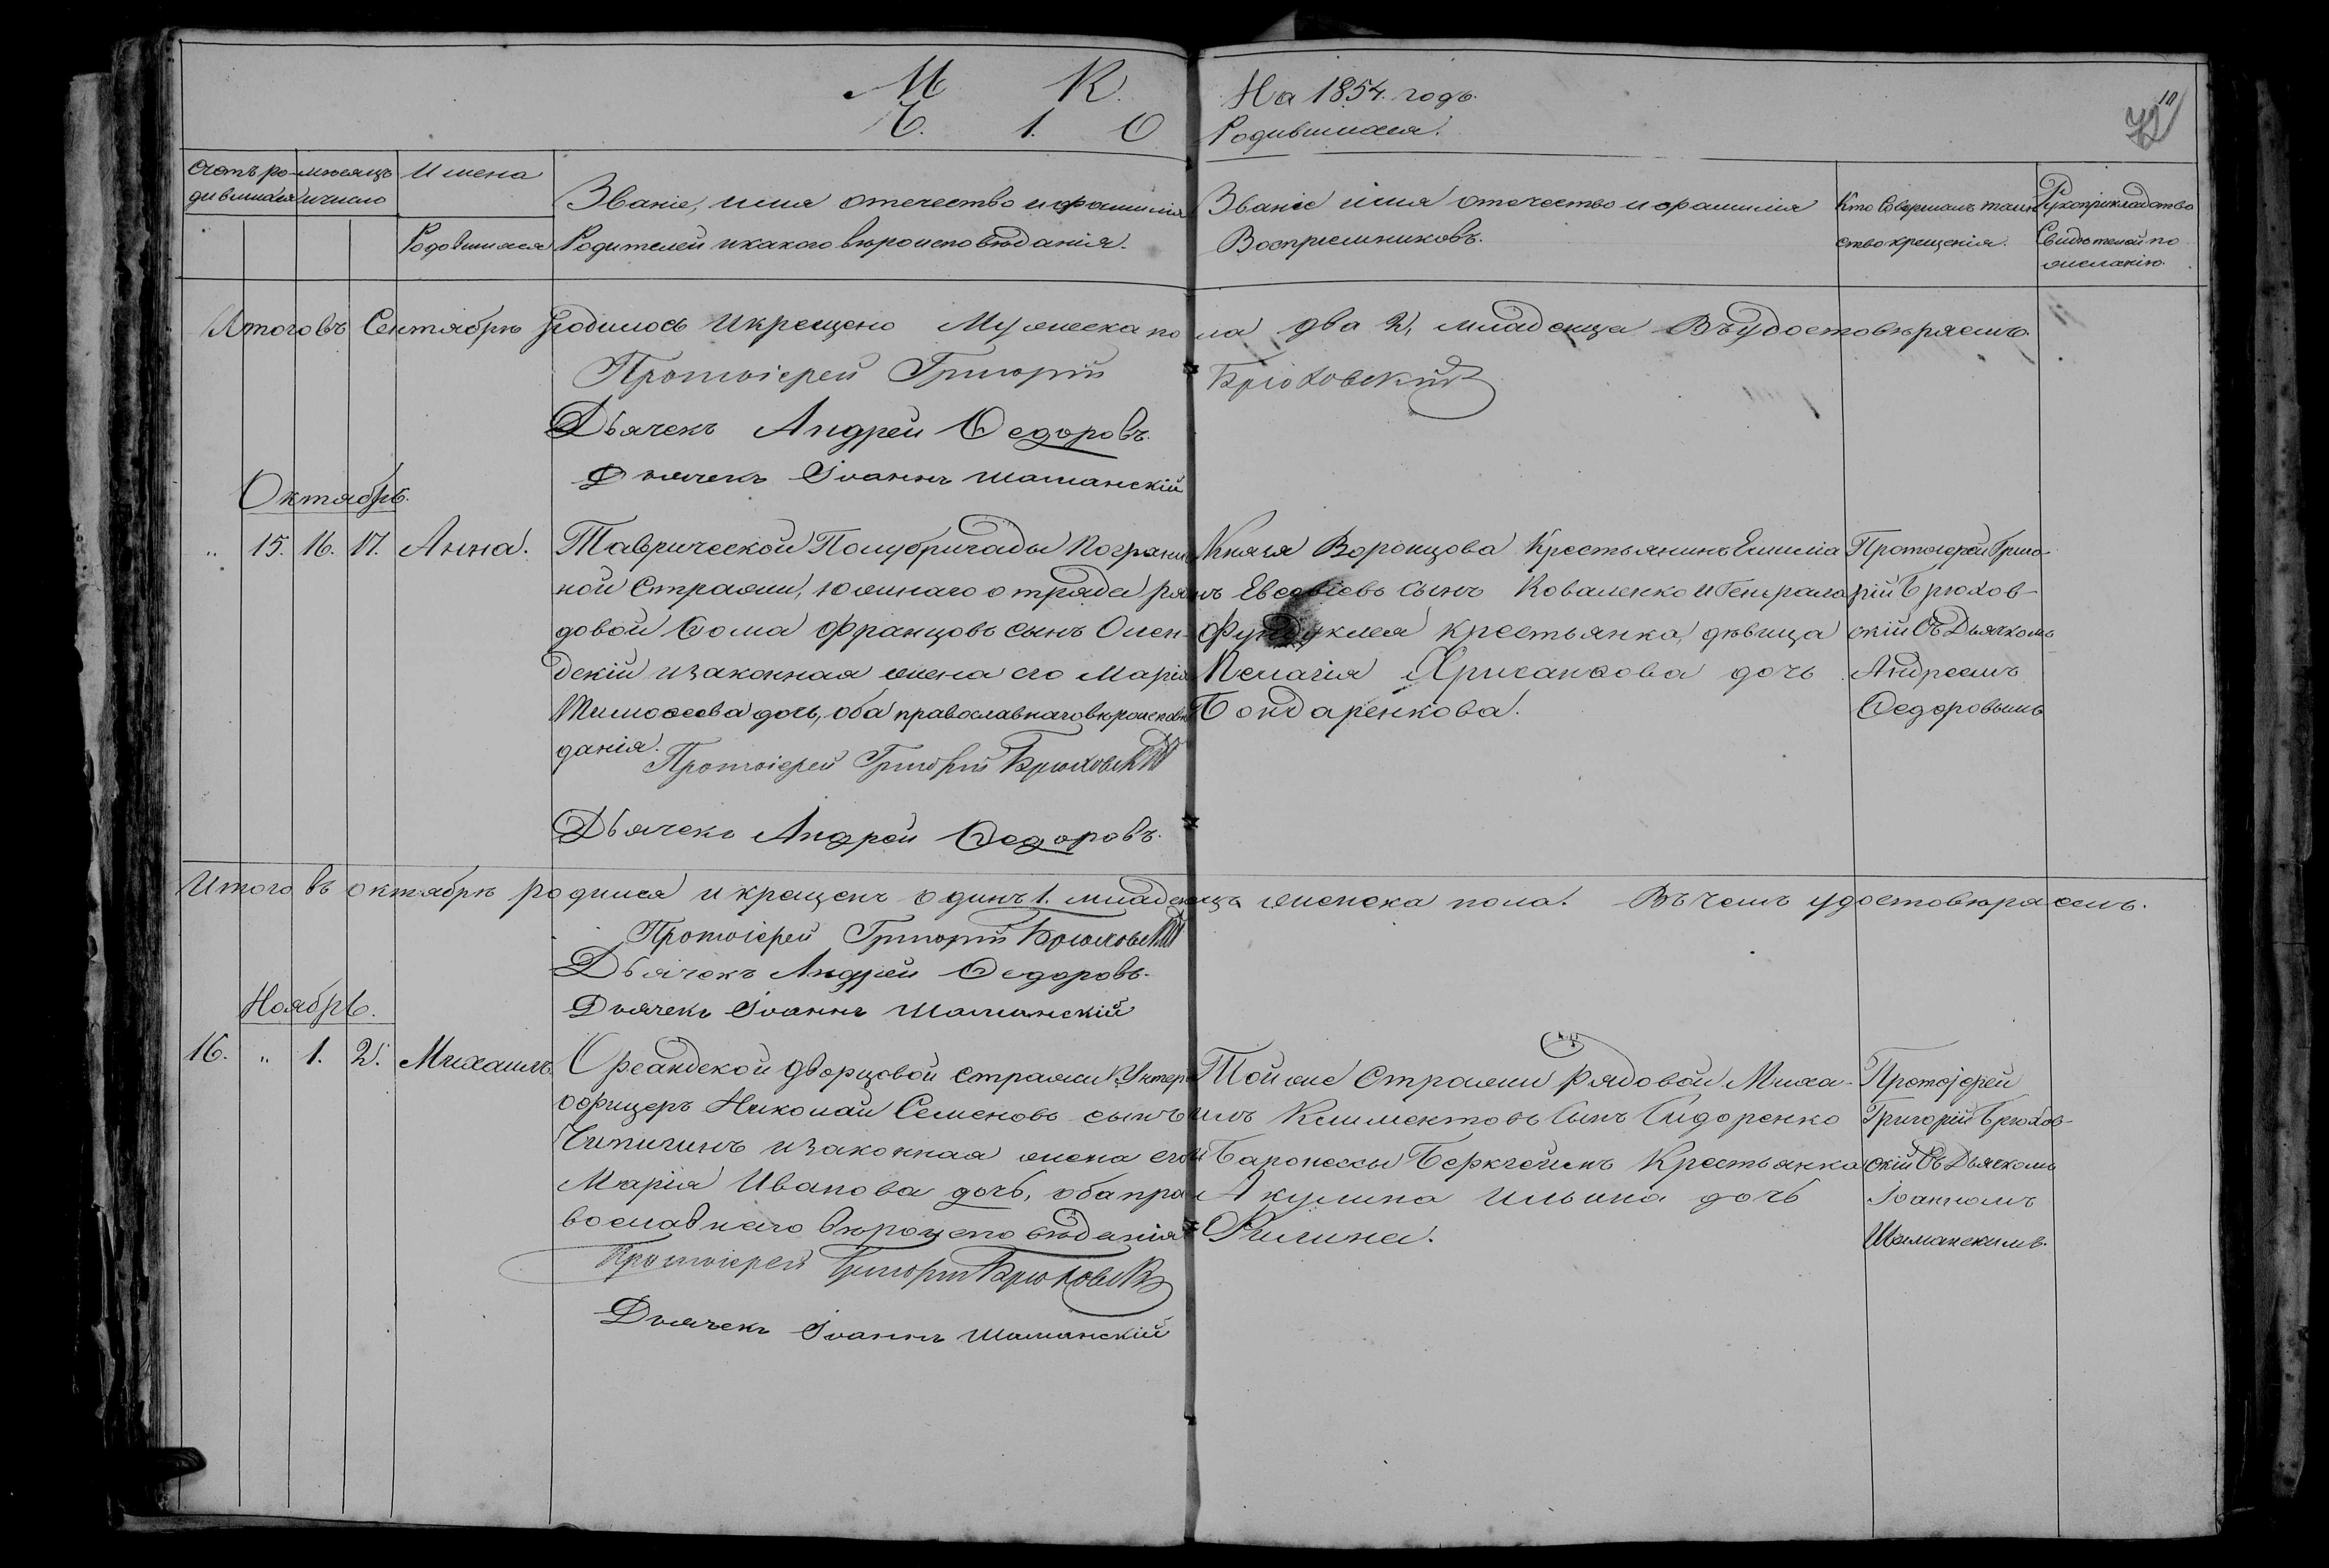 М К. На 1854. годъ.
Ч. 1. О Родившихся.
Счетъ ро- мѣсяцъ Имена
дившихся и число Званіе, имя отечество и фамилія Званіе имя отечество и фамилія Кто Совершалъ таин Рукоприкладство
Родовшихся Родителей и какого вѣроисповѣданія. Воспрiемниковъ. ство крещенія. Свидѣтелей по
желанію.
Итого въ Сентябрѣ родилось И крещено Мужеска пола два 2, младенца Въ удостовѣряемъ.
Протоіерей Григорій Брюховскій
Дьячекъ Андрей Ѳедоровъ.
Дьячекъ Іоаннъ Шаманскій
Октябрь.
„ 15. 16. 17. Анна. Таврической Полубригады Погранич
ной Стражи, южнаго отряда ря
довой Ѳома Францовъ сынъ
и законная жена его Марія
Тимоѳеева дочь, оба православнаго вѣроисповѣ
данія.
Протоіерей Григорій Брюховскій
Дьячекъ Андрей Ѳедоровъ.
Князя Воронцова Крестьянинъ Емилiа
нъ Евсѣвіевъ Сынъ Коваленко и Генерала
Фундуклея крестьянка, дѣвица
Пелагія Хрисанѳова дочь
Бондаренкова.
Протоіерей Григо-
рій Брюхов-
скій Съ Дьячкомъ
Андреемъ
Ѳедоровымъ
Итого въ октябрѣ родился и крещенъ одинъ 1. младенецъ женска пола. Въ чемъ удостовѣряемъ.
Протоіерей Григорій Брюховскій
Дьячокъ Андрей Ѳедоровъ.
Дьячекъ Іоаннъ Шаманскій
Ноябрь.
16. „ 1. 2. Михаилъ. Ореандской дворцовой стражи Унтеръ
офицеръ Николай Семеновъ сынъ
Чипигинъ и законная жена его
Марія Иванова дочь, оба пра
вославнаго вѣроисповѣданія
Протоіерей Григорій Брюховскій
Дьячекъ Іоаннъ Шаманскій
Той же Стражи рядовой Миха-
илъ Климентовъ Сынъ Сидоренко
и Баронессы Беркгеймъ Крестьянка
Акулина Ильина дочь
Протоіерей
Григорій Брюхов-
скій Съ Дьячкомъ
Іоанномъ
Шаманскимъ.